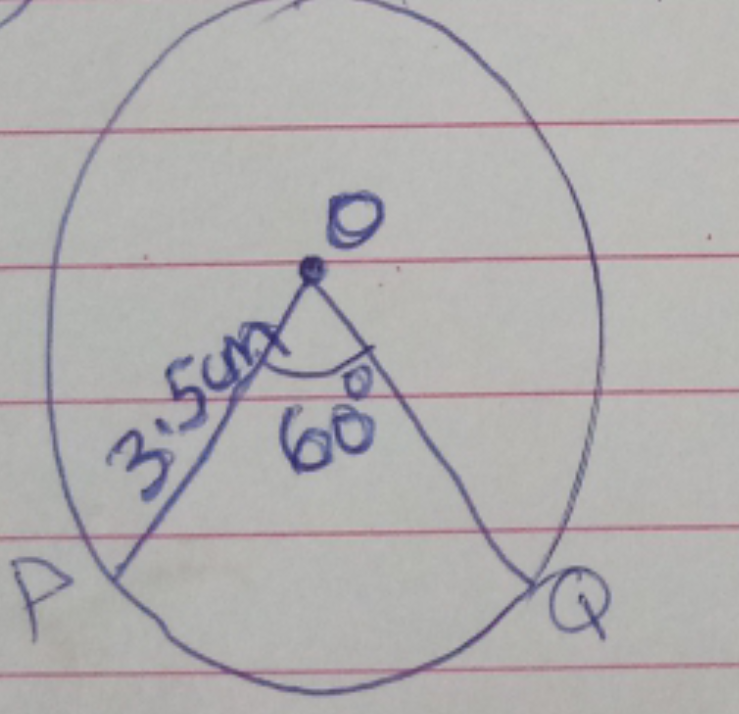 O
3.5cm
60°
P
Q